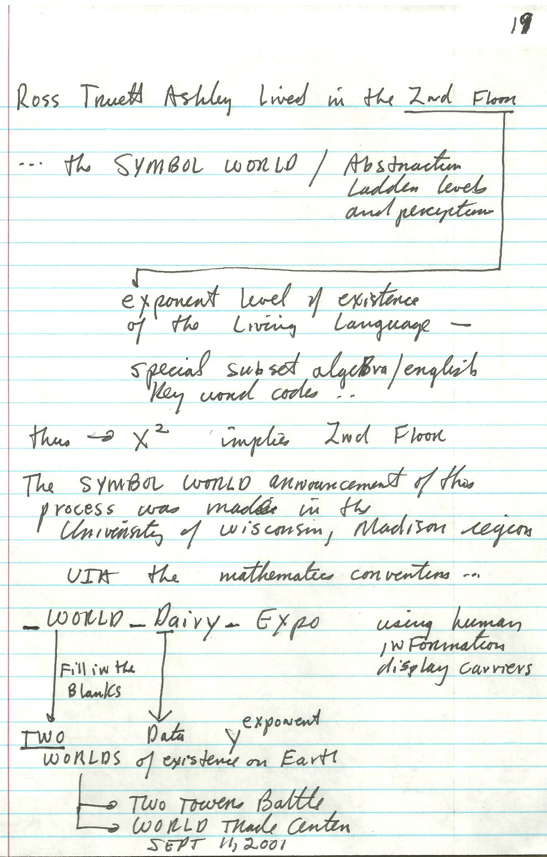 19
Ross Truett Ashley lived in the 2nd Floor
... the SYMBOL WORLD / Abstraction
Ladder levels
and perception
exponent level of existence
of the Living Language —
special subset algebra/english
Key word codes ..
thus → X² implies 2nd Floor
The SYMBOL WORLD announcement of this
process was made in the
University of Wisconsin, Madison region
VIA the mathematics conventions ...
_ WORLD _ Dairy _ Expo using human
inFormation
display carriers
Fill in the
Blanks
TWO Data y exponent
WORLDS of existence on Earth
→ TWO Towers Battle
→ WORLD Trade Center
SEPT 11, 2001